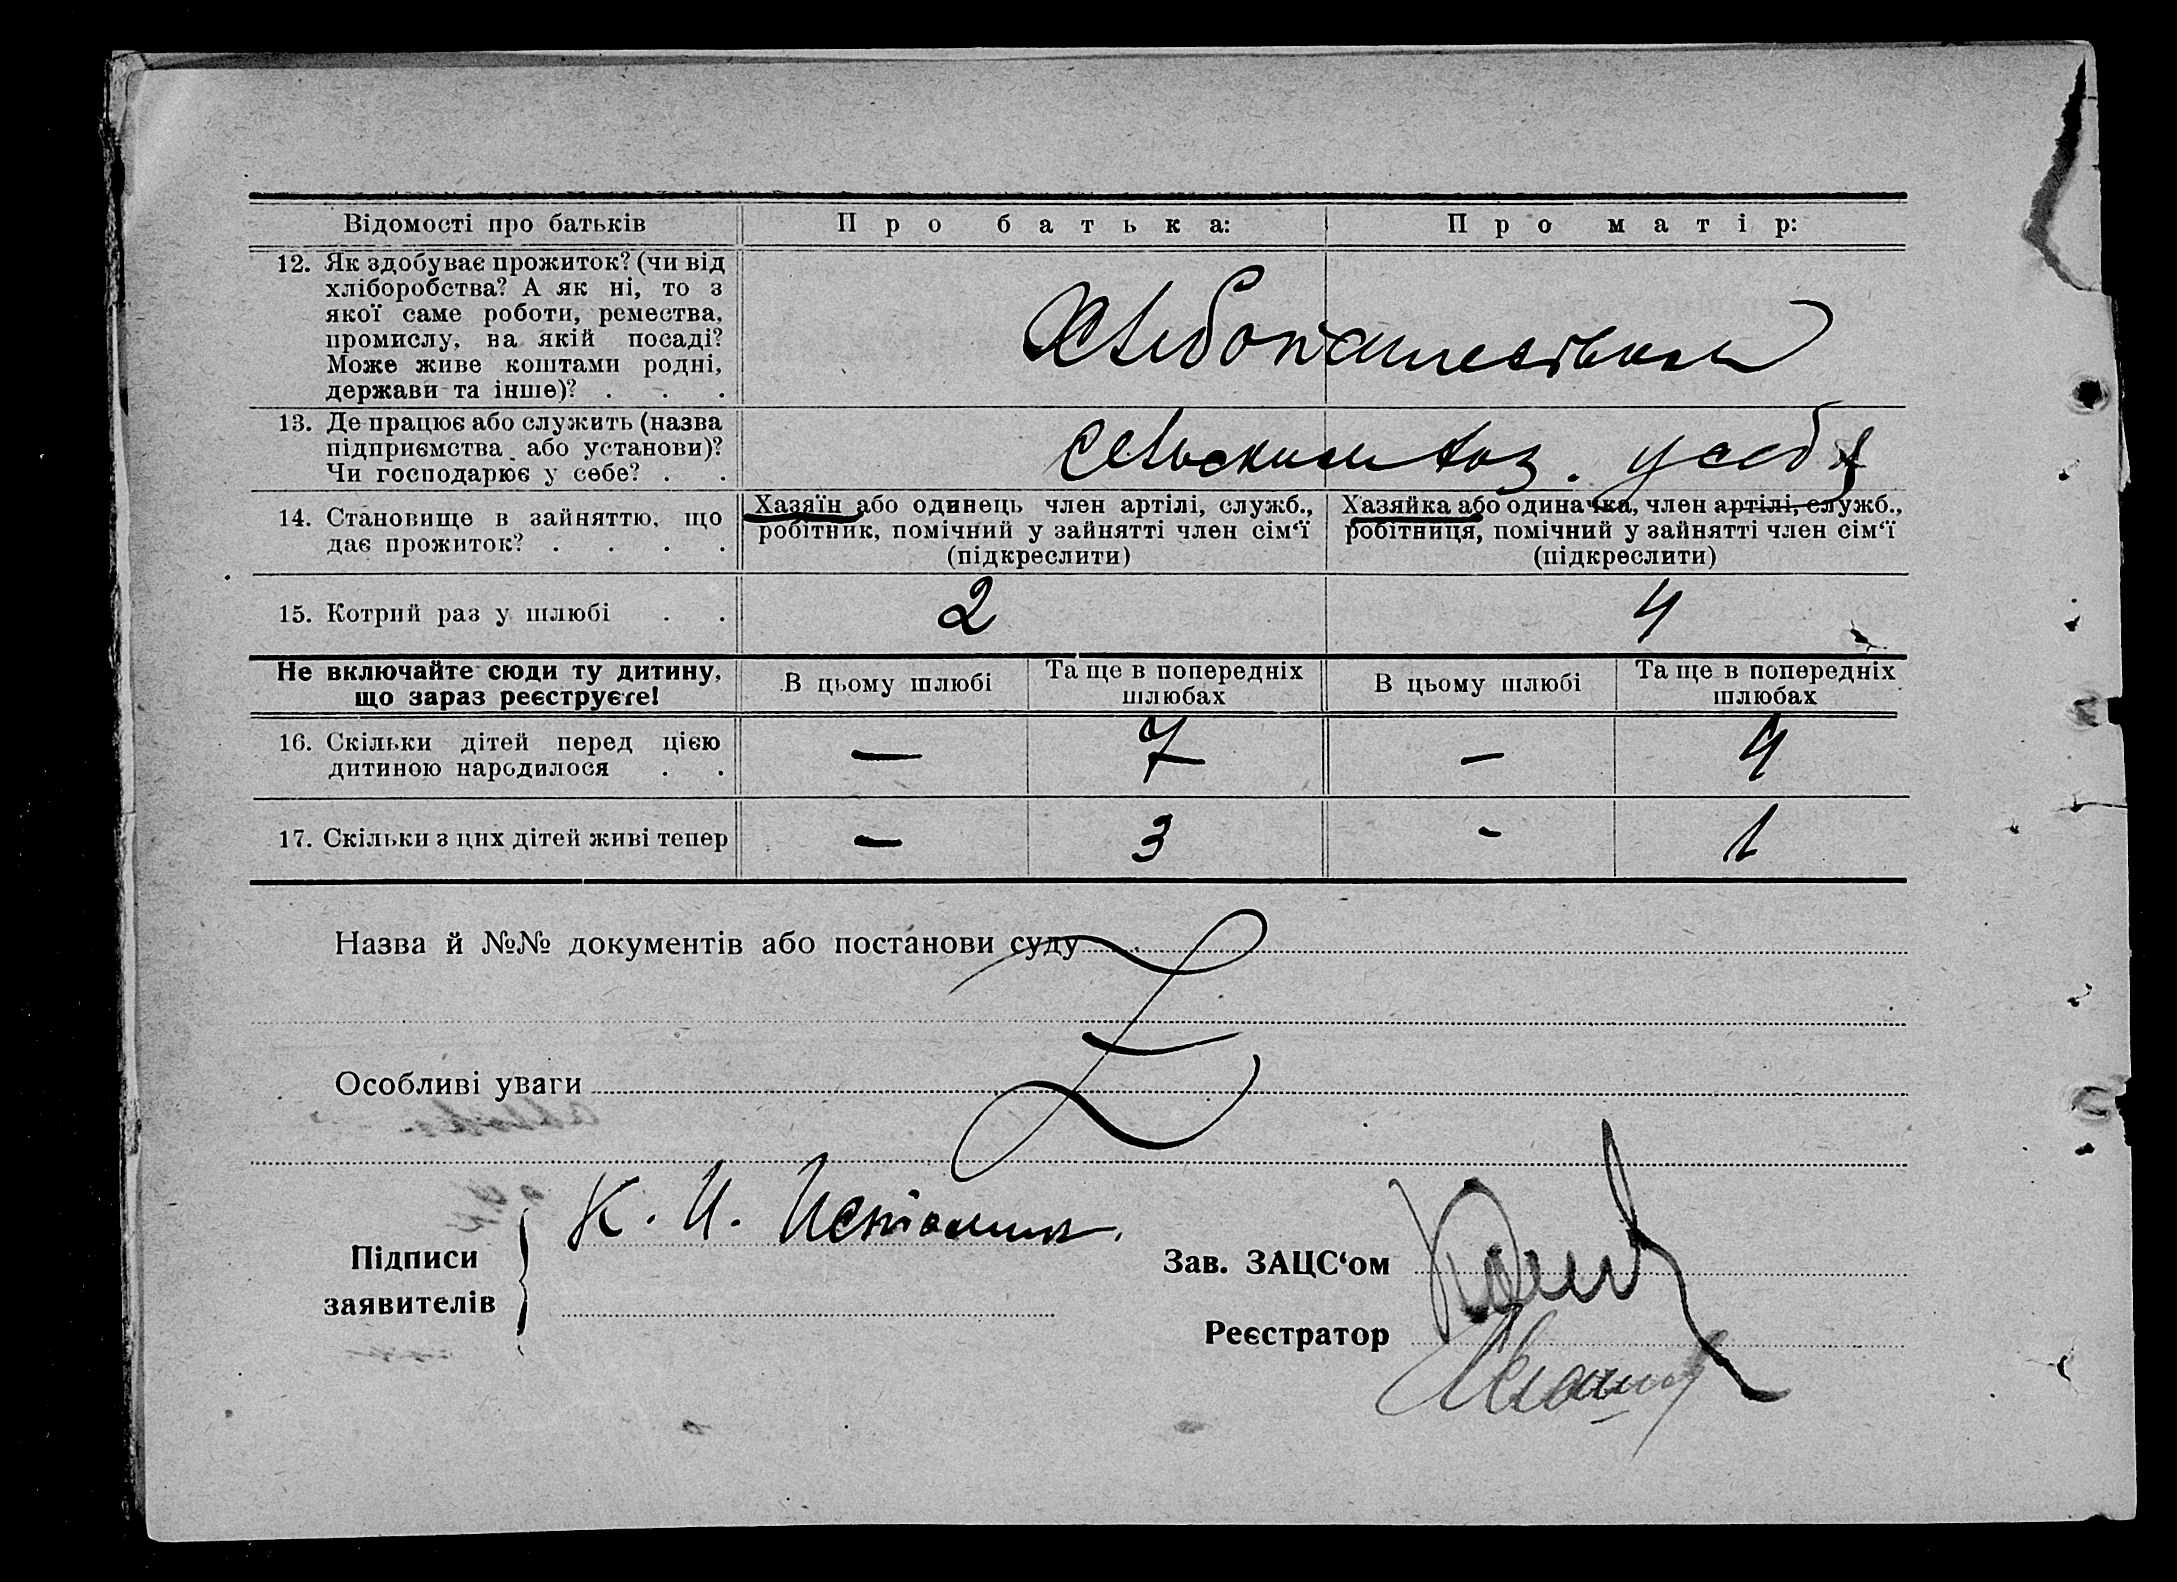 Відомості про батьків
Про батька:
Про матір:
12. Як здобуває прожиток? (чи від
хліборобства? А як ні, то з
якої саме роботи, ремества,
промислу, на якій посаді?
Може живе коштами родні,
держави та інше)? . . .
Хлебопашеством
13. Де працює або служить (назва
підприємства або установи)?
Чи господарює у себе? . .
Сельским хоз. у себя
14. Становище в зайняттю, що
дає прожиток? . . . .
Хазяїн або одинець член артілі, служб.,
робітник, помічний у зайнятті член сім‘ї
(підкреслити)
Хазяйка або одиначка, член артілі, служб.,
робітниця, помічний у зайнятті член сім‘ї
(підкреслити)
15. Котрий раз у шлюбі . .
2
4
Не включайте сюди ту дитину,
що зараз реєструєте!
В цьому шлюбі
Та ще в попередніх
шлюбах
В цьому шлюбі
Та ще в попередніх
шлюбах
16. Скільки дітей перед цією
дитиною народилося . .
— 7 — 4
17. Скільки з цих дітей живі тепер
— 3 - 1
Назва й №№ документів або постанови суду
Особливі уваги
Підписи
заявителів
К. И.
Зав. ЗАЦС‘ом
Реєстратор